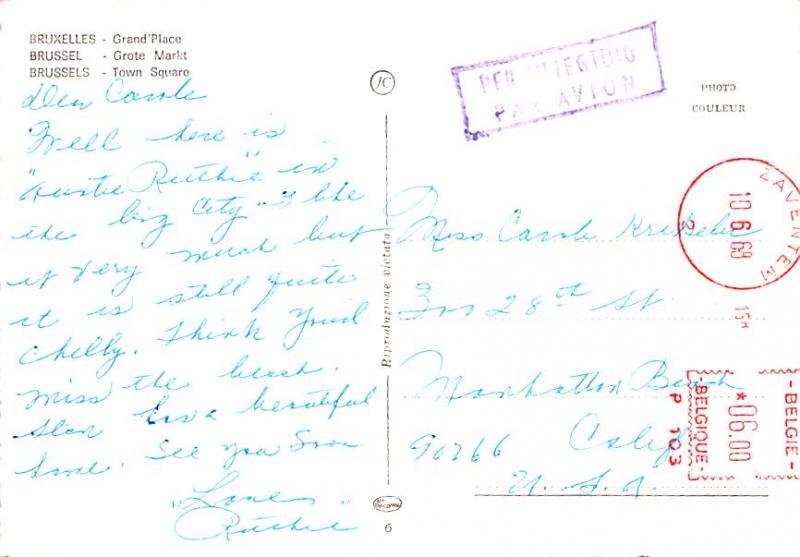 BRUXELLES - Grand'Place
BRUSSEL - Grote Markt
BRUSSELS - Town Square
Dear Carole
Well here is
"Auntie Ruthie" in
the big City - I like
it very much but
it is still quite
chilly. Think you'd
miss the beach.
has a beautiful
See you Soon
"Love"
Ruthie
JC
Riproduzione vietata
6
PER VLIEGTUIG
PAR AVION
PHOTO
COULEUR
ZAVENTEM
10 6 69
15H
2
Miss Carole
28th St
Manhattan Beach
90266 Calif
U.S.A.
BELGIQUE-BELGIE
*06.00
P 103